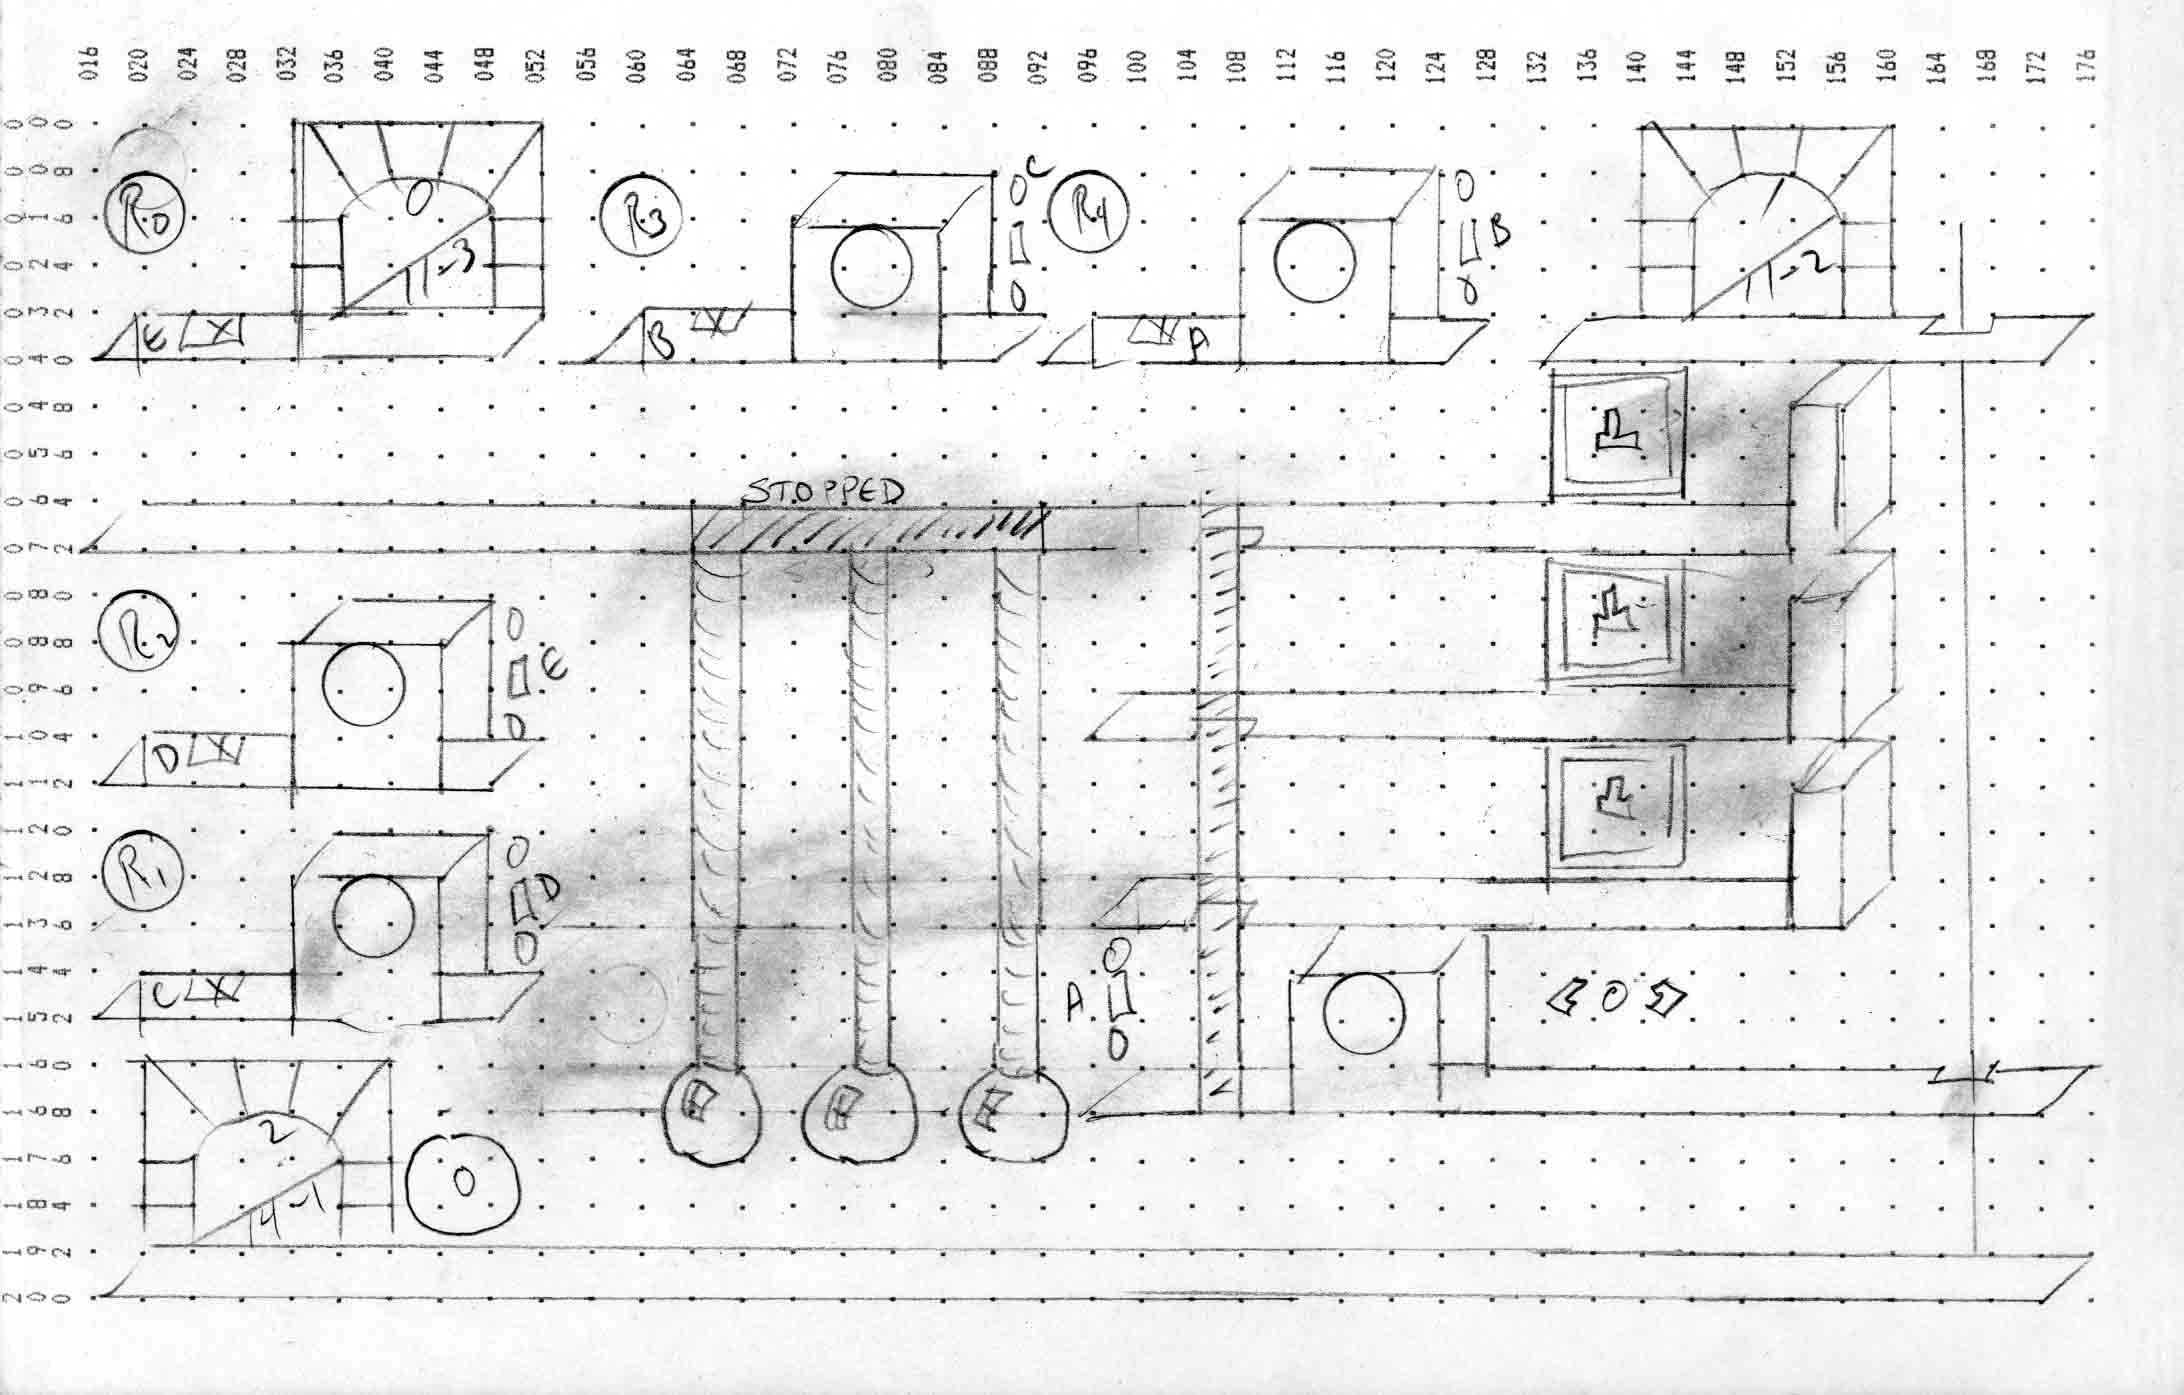 016 020 024 028 032 036 040 044 048 052 056 060 064 068 072 076 080 084 088 092 096 100 104 108 112 116 120 124 128 132 136 140 144 148 152 156 160 164 168 172 176
000
008
016
024
032
040
048
056
064
072
080
088
096
104
112
120
128
136
144
152
160
168
176
184
192
200
R0
0
11-3
E X
R3
C
B X
R4
B
X A
11-2
STOPPED
R2
E
D X
R1
D
C X
A
2
14-1
0